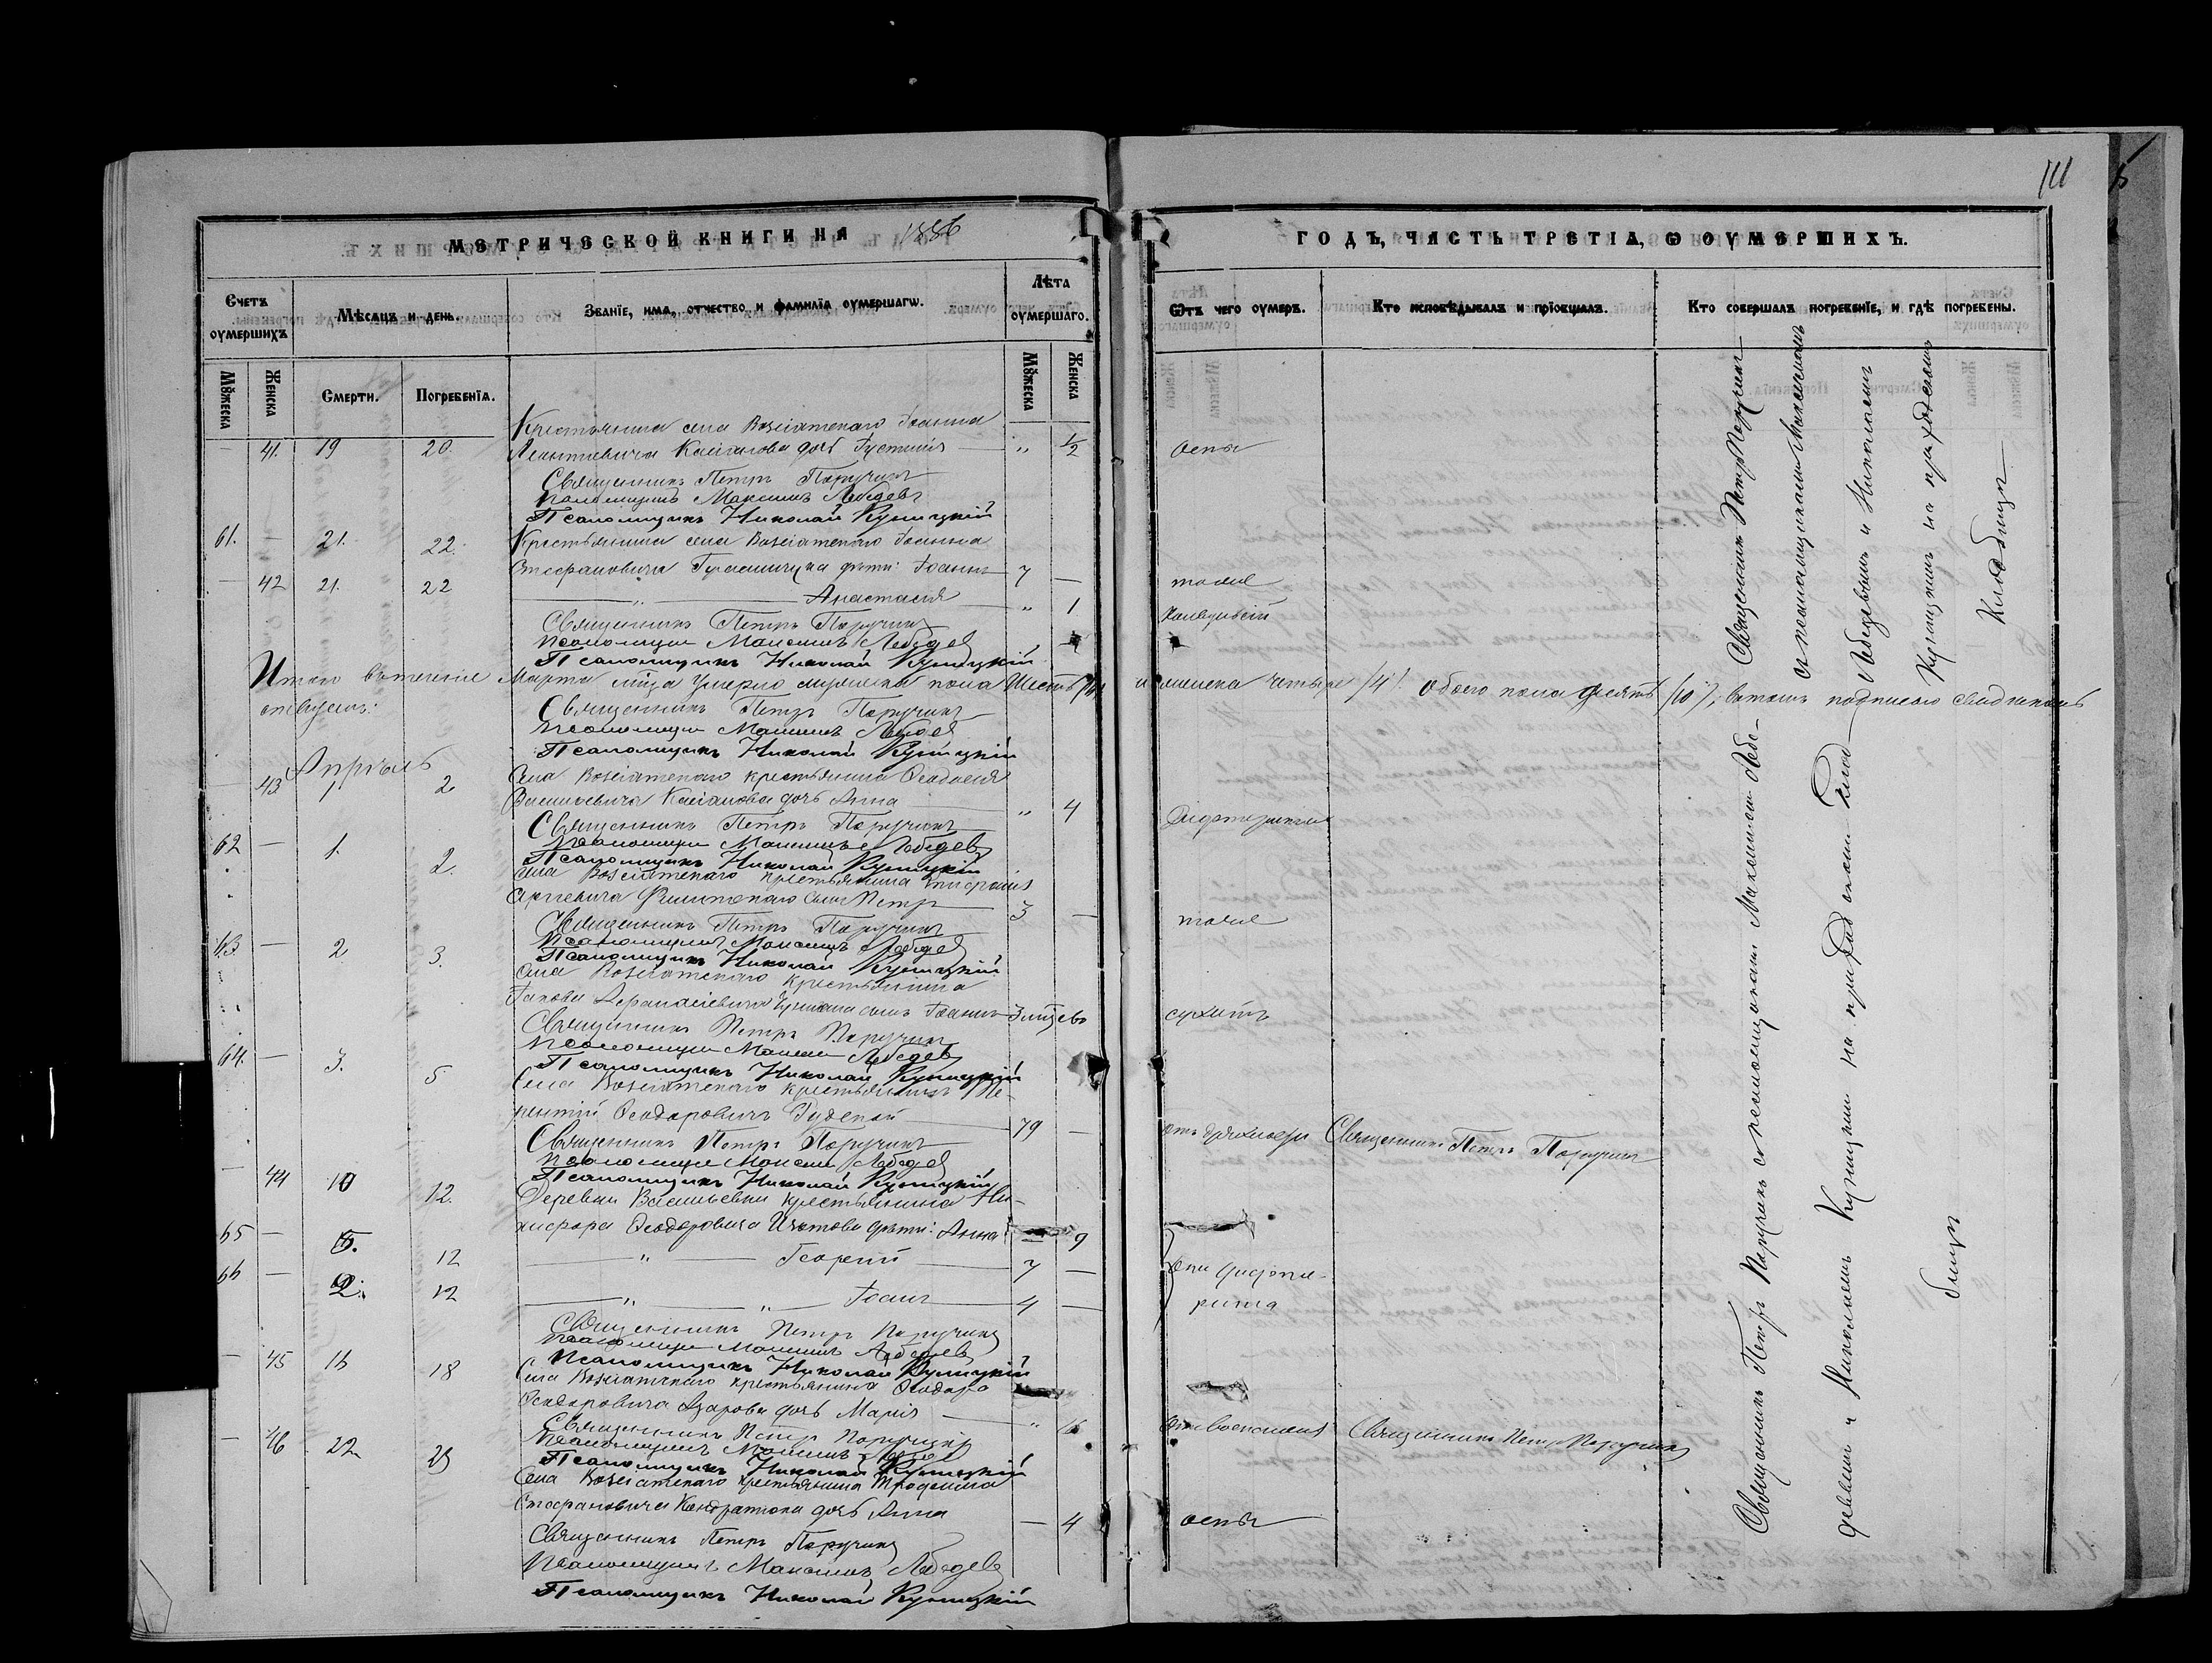 111
МЕТРИЧЕСКОЙ КНИГИ НА 1886
ГОДЪ, ЧАСТЬ ТРЕТІѦ, Ѡ ОУМЕРШИХЪ.
Счетъ оумершихъ
Мѣсяцъ и день.
Званїе, имѧ, отчество и фамилїа оумершагѡ.
Лѣта оумершаго.
Ѿтъ чего оумеръ.
Кто исповѣдывалъ и прїобщалъ.
Кто совершалъ погребенїе, и гдѣ погребены.
Мꙋжеска
Женска
Смерти.
Погребенїа.
Мꙋжеска
Женска
Крестьянина села Возсіятскаго Іоанна
41. 19 20. Леонтіевича дочь — " ½ оспы
Священникъ Петръ Поручикъ
Псаломщикъ Максимъ Лебедевъ
Псаломщикъ Николай Куницкій
61. — 21. 22. Крестьянина села Возсіятскаго Іоанна
Стефановича дѣти: Іоаннъ 7 — тоже
— 42 21. 22 — " — Анастасія " 1
Священникъ Петръ Поручикъ
Псаломщикъ Максимъ Лебедевъ
Псаломщикъ Николай Куницкій
Итого въ теченіе Марта мѣсяца умерло мужеска пола шесть /6/ и женска четыре /4/. обоего пола десять /10/, въ томъ подписью свидѣтель
ствуемъ:
Священникъ Петръ Поручикъ
Псаломщикъ Максимъ Лебедевъ
Псаломщикъ Николай Куницкій
Апрѣль
— 43. 1 2 Села Возсіятскаго крестьянина Ѳеодосія
Васильевича дочь Анна — " 4
Священникъ Петръ Поручикъ
62 — 1. 2. Псаломщикъ Максимъ Лебедевъ
Псаломщикъ Николай Куницкій
Села Возсіятскаго крестьянина
Сергіевича сынъ Петръ 3 — тоже
Священникъ Петръ Поручикъ
63. — 2 3. Псаломщикъ Максимъ Лебедевъ
Псаломщикъ Николай Куницкій
Села Возсіятскаго крестьянина
Іакова Аѳанасіевича сынъ Іоаннъ 3 мѣсяцевъ
Священникъ Петръ Поручикъ
Псаломщикъ Максимъ Лебедевъ
64. — 3. 5 Псаломщикъ Николай Куницкій
Села Возсіятскаго крестьянинъ Те-
рентій Ѳеодоровичъ 79 — отъ дряхлости Священникъ Петръ Поручикъ
Священникъ Петръ Поручикъ
Псаломщикъ Максимъ Лебедевъ
— 44 10 12. Псаломщикъ Николай Куницкій
Деревни Васильевки крестьянина Ни-
кифора Ѳеодоровича Изотова дѣти: Анна — 9
65 — 12 — " — Георгій 7 —
66 — 12 — " — " — Іоаннъ 4 —
Священникъ Петръ Поручикъ
Псаломщикъ Максимъ Лебедевъ
— 45 16 18 Псаломщикъ Николай Куницкій
Села Возсіятскаго крестьянина Ѳеодора
Ѳеодоровича Азарова дочь Марія — " Священникъ Петръ Поручикъ
Священникъ Петръ Поручикъ
— 46 22 23 Псаломщикъ Максимъ Лебедевъ
Псаломщикъ Николай Куницкій
Села Возсіятскаго крестьянина Трофима
Стефановича Кондратюка дочь Анна — 4 оспы
Священникъ Петръ Поручикъ
Псаломщикъ Максимъ Лебедевъ
Псаломщикъ Николай Куницкій
Священникъ Петръ Поручикъ
съ псаломщиками Максимомъ
Лебедевымъ и Николаемъ
Куницкимъ на приходскомъ
кладбищѣ
Священникъ Петръ Поручикъ съ псаломщиками Максимомъ Лебе-
девымъ и Николаемъ Куницкимъ на приходскомъ клад-
бищѣ